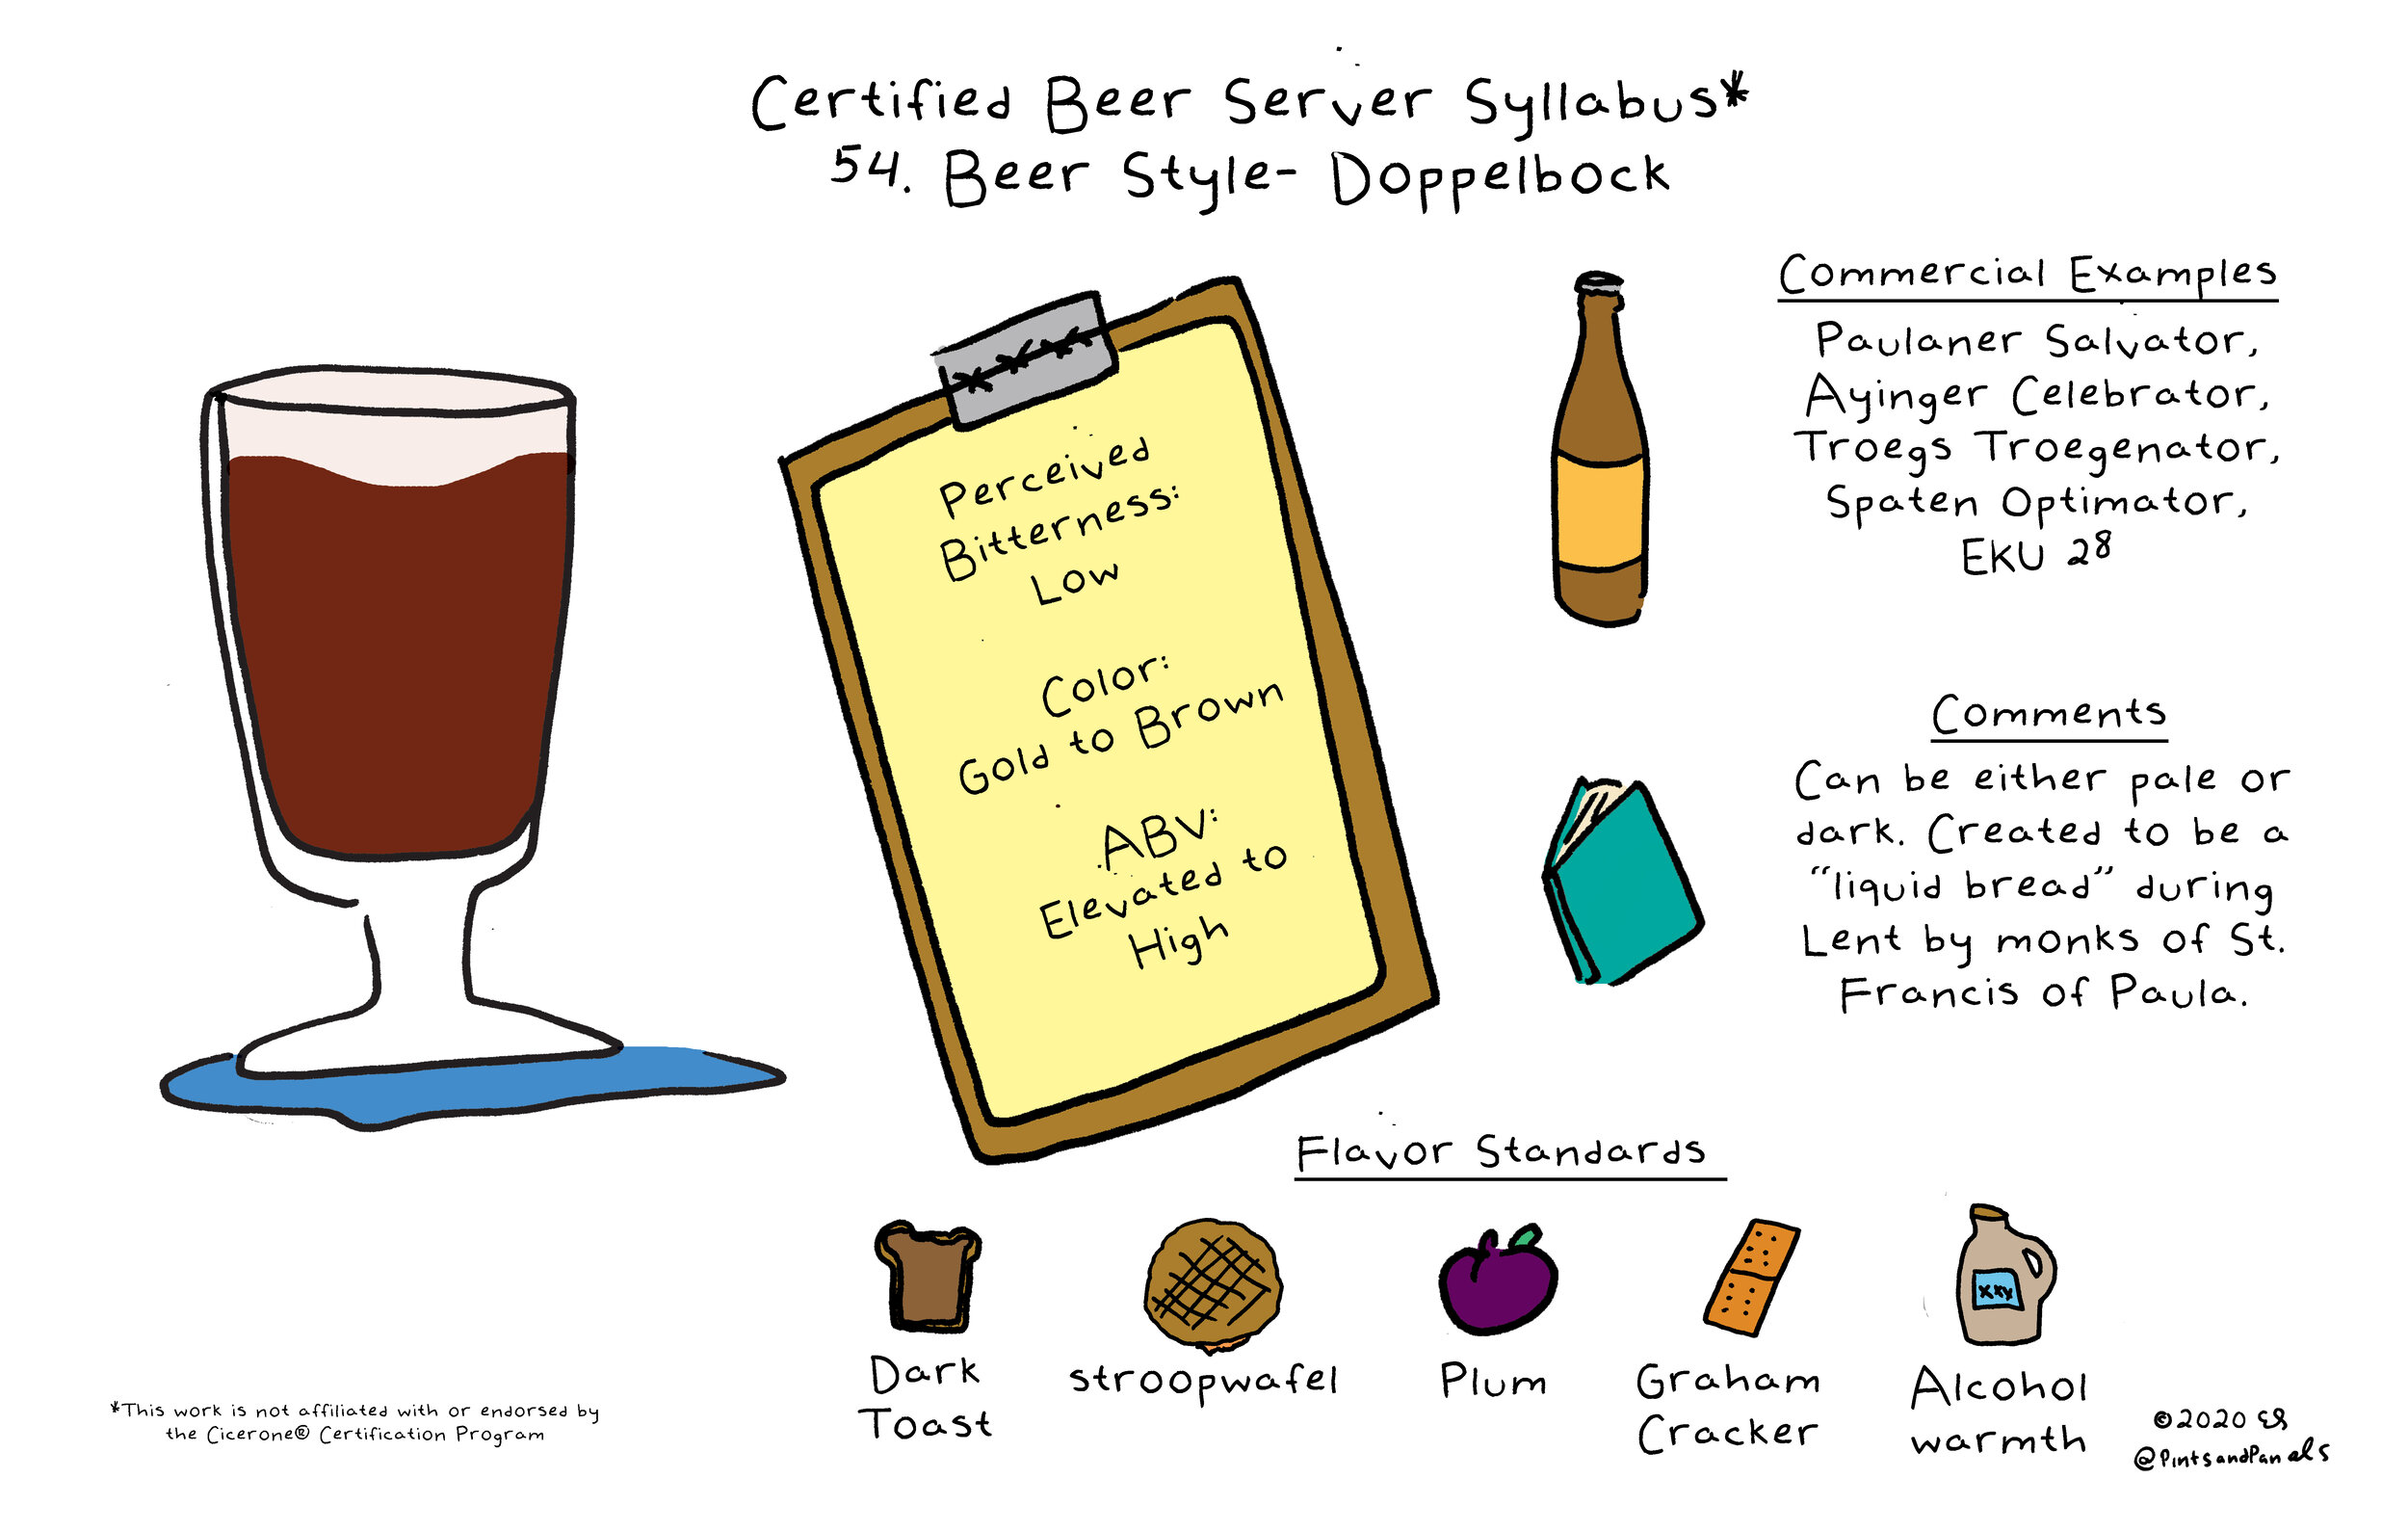 Certified Beer Server Syllabus*
54. Beer Style- Doppelbock
Perceived
Bitterness:
Low
Color:
Gold to Brown
ABV:
Elevated to
High
Commercial Examples
Paulaner Salvator,
Ayinger Celebrator,
Troegs Troegenator,
Spaten Optimator,
EKU 28
Comments
Can be either pale or
dark. Created to be a
“liquid bread” during
Lent by monks of St.
Francis of Paula.
Flavor Standards
Dark
Toast
stroopwafel
Plum
Graham
Cracker
xxx
Alcohol
warmth
*This work is not affiliated with or endorsed by
the Cicerone® Certification Program
©2020 ES
@PintsandPanels